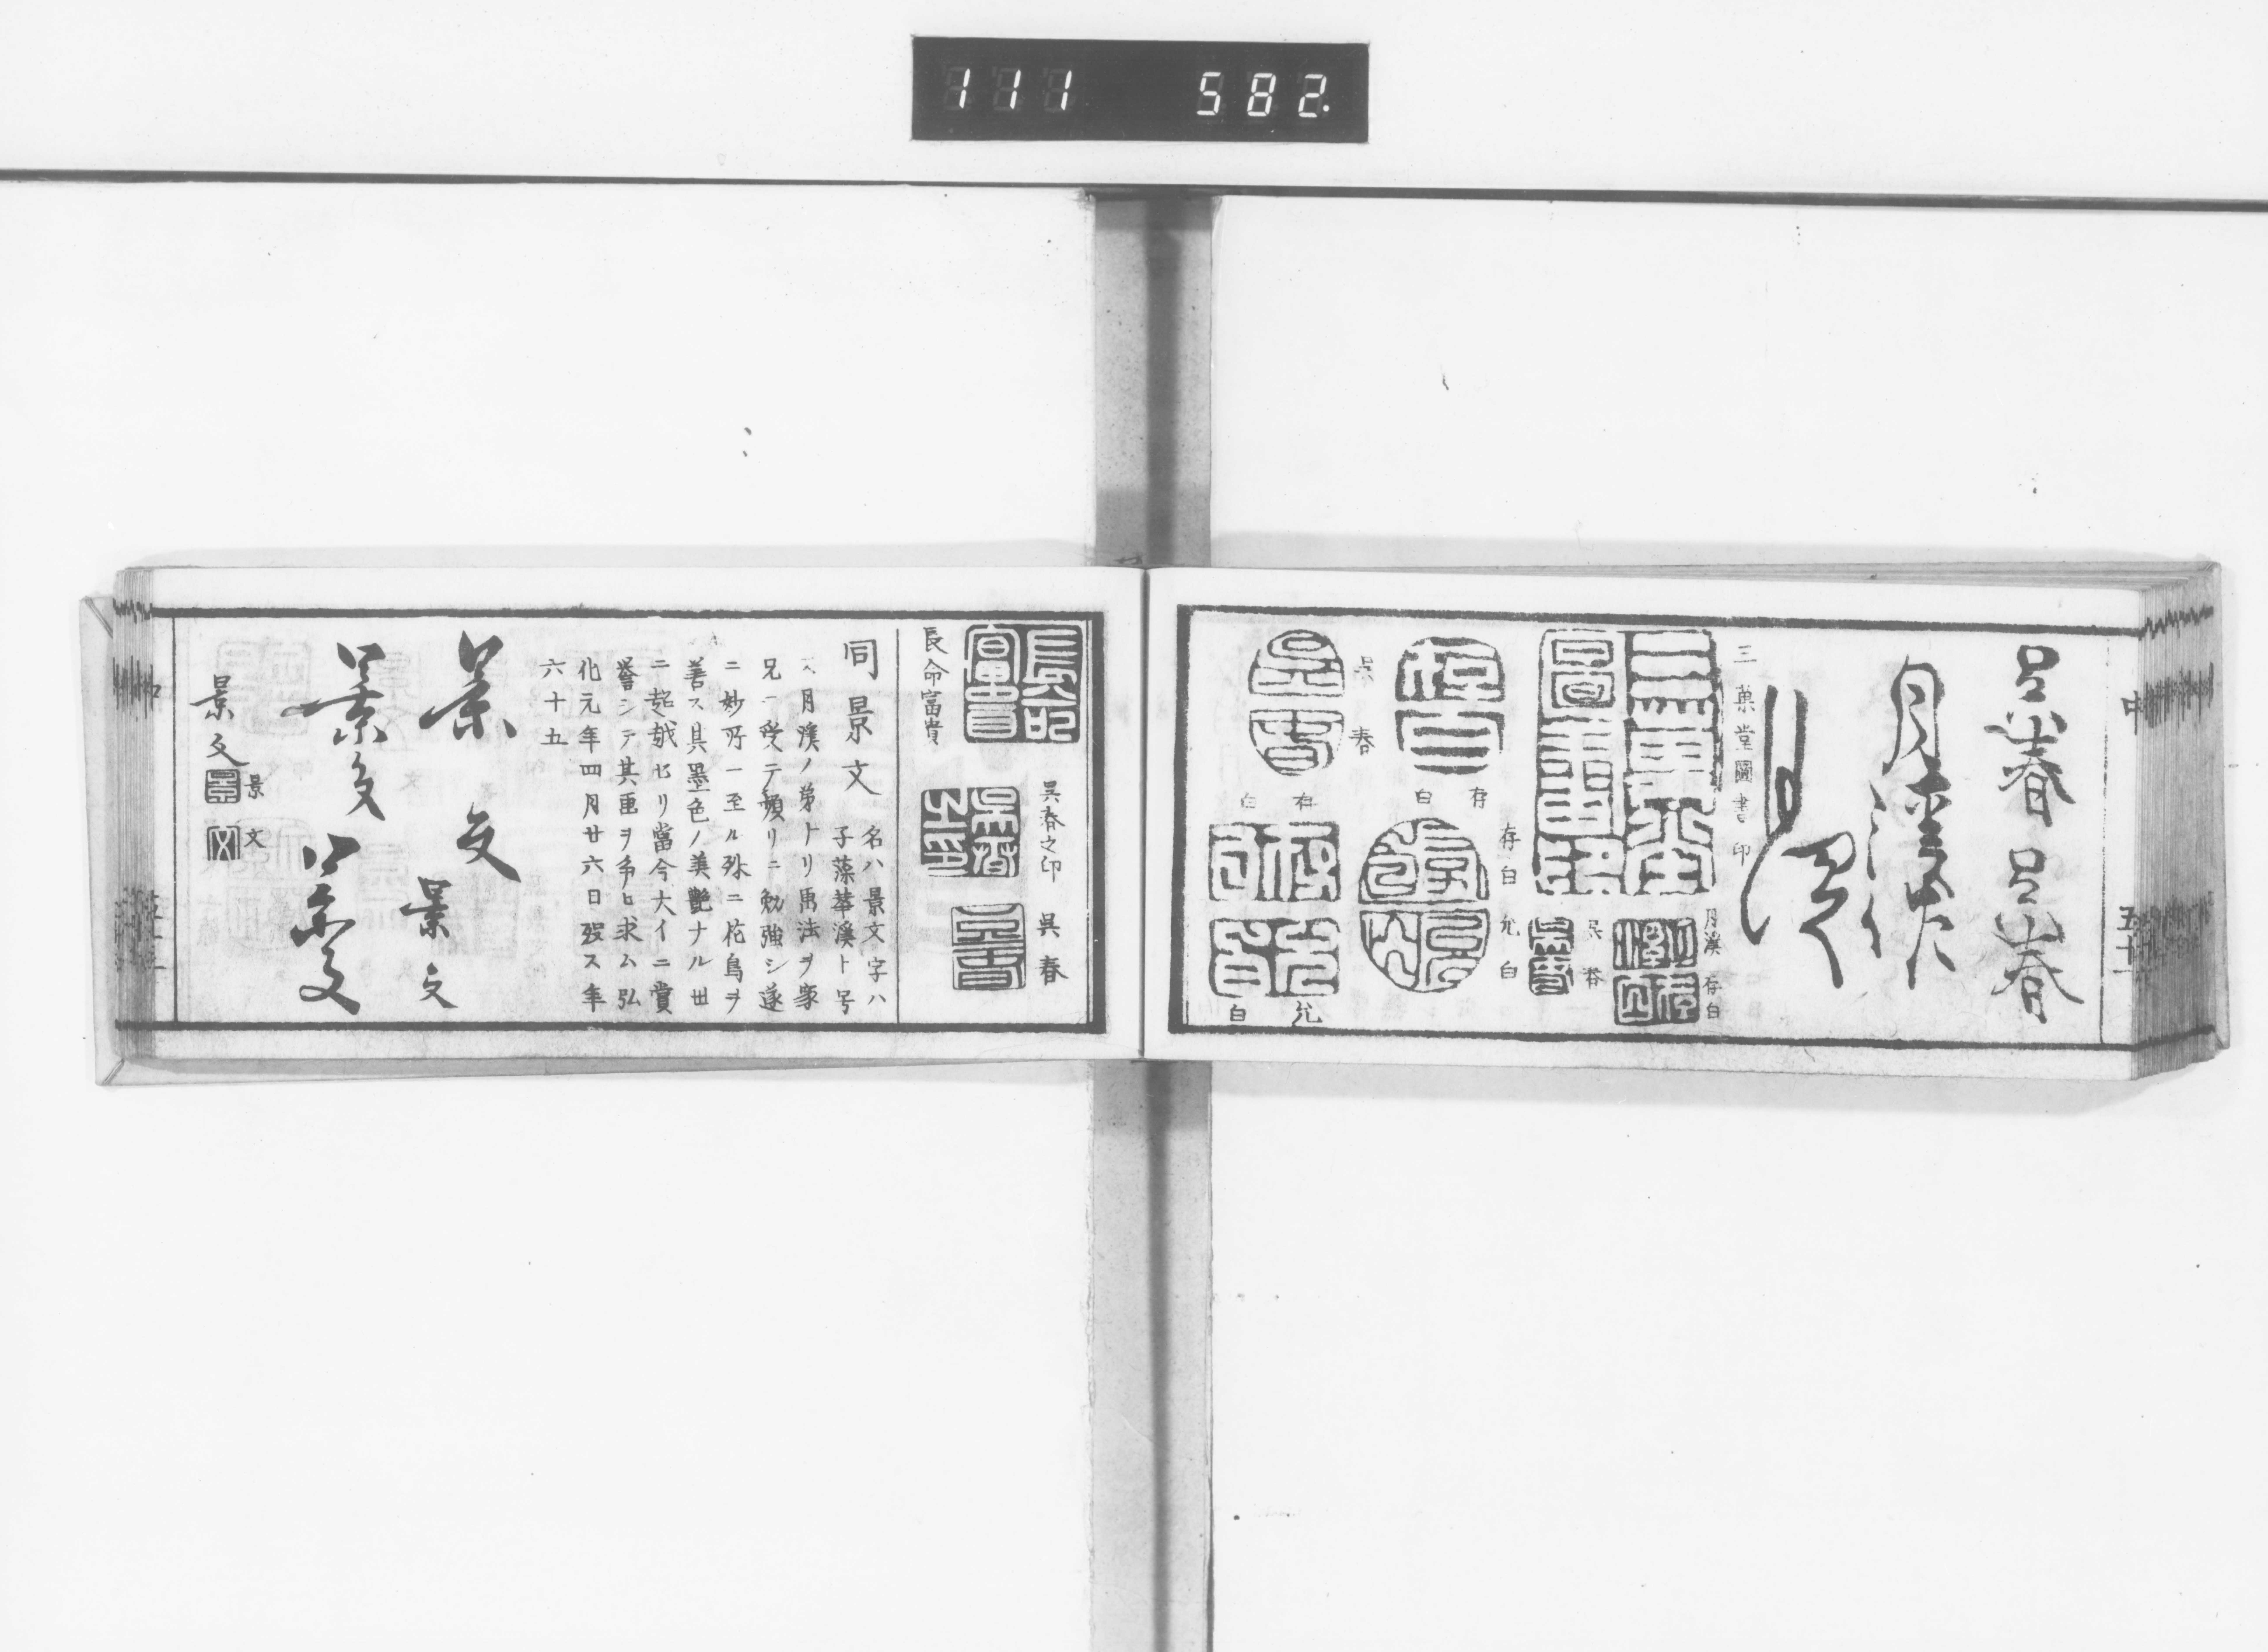 111 582.
中
五十一
呉春 呉春
月溪
三菓堂圖書印
月溪 存白
呉春
存白
存白允白
呉春
存白
允白
呉春之印
呉春
長命富貴
同景文
名ハ景文字ハ
子藻華溪ト号
ス月溪ノ弟ナリ画法ヲ家
兄ニ受テ頻リニ勉強シ遂
ニ妙所ニ至ル殊ニ花鳥ヲ
善ス其墨色ノ美艶ナル世
ニ超越セリ當今大イニ賞
誉シテ其画ヲ争ヒ求ム弘
化元年四月廿六日歿ス年
六十五
景文
景文
景文
景文
景文
景文